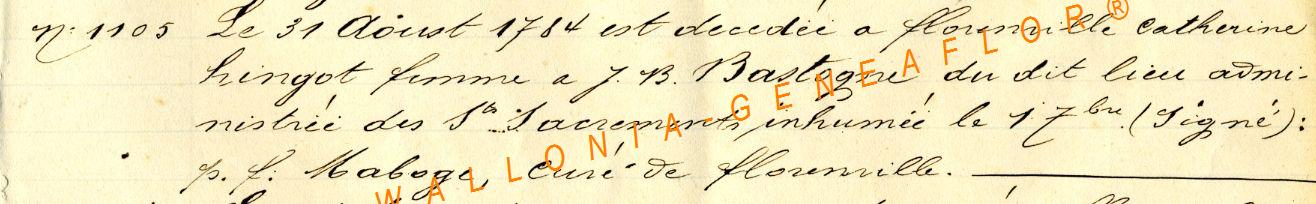 n: 1105 Le 31 Aoust 1784 est decedée a florenville Catherine
hingot femme a J. B. Bastogne, du dit lieu admi-
nistrée des Sts Sacrements, inhumée le 1 7bre. (Signé):
p. f. Maboge, Curé de florenville.
WALLONIA-GENEAFLOR®